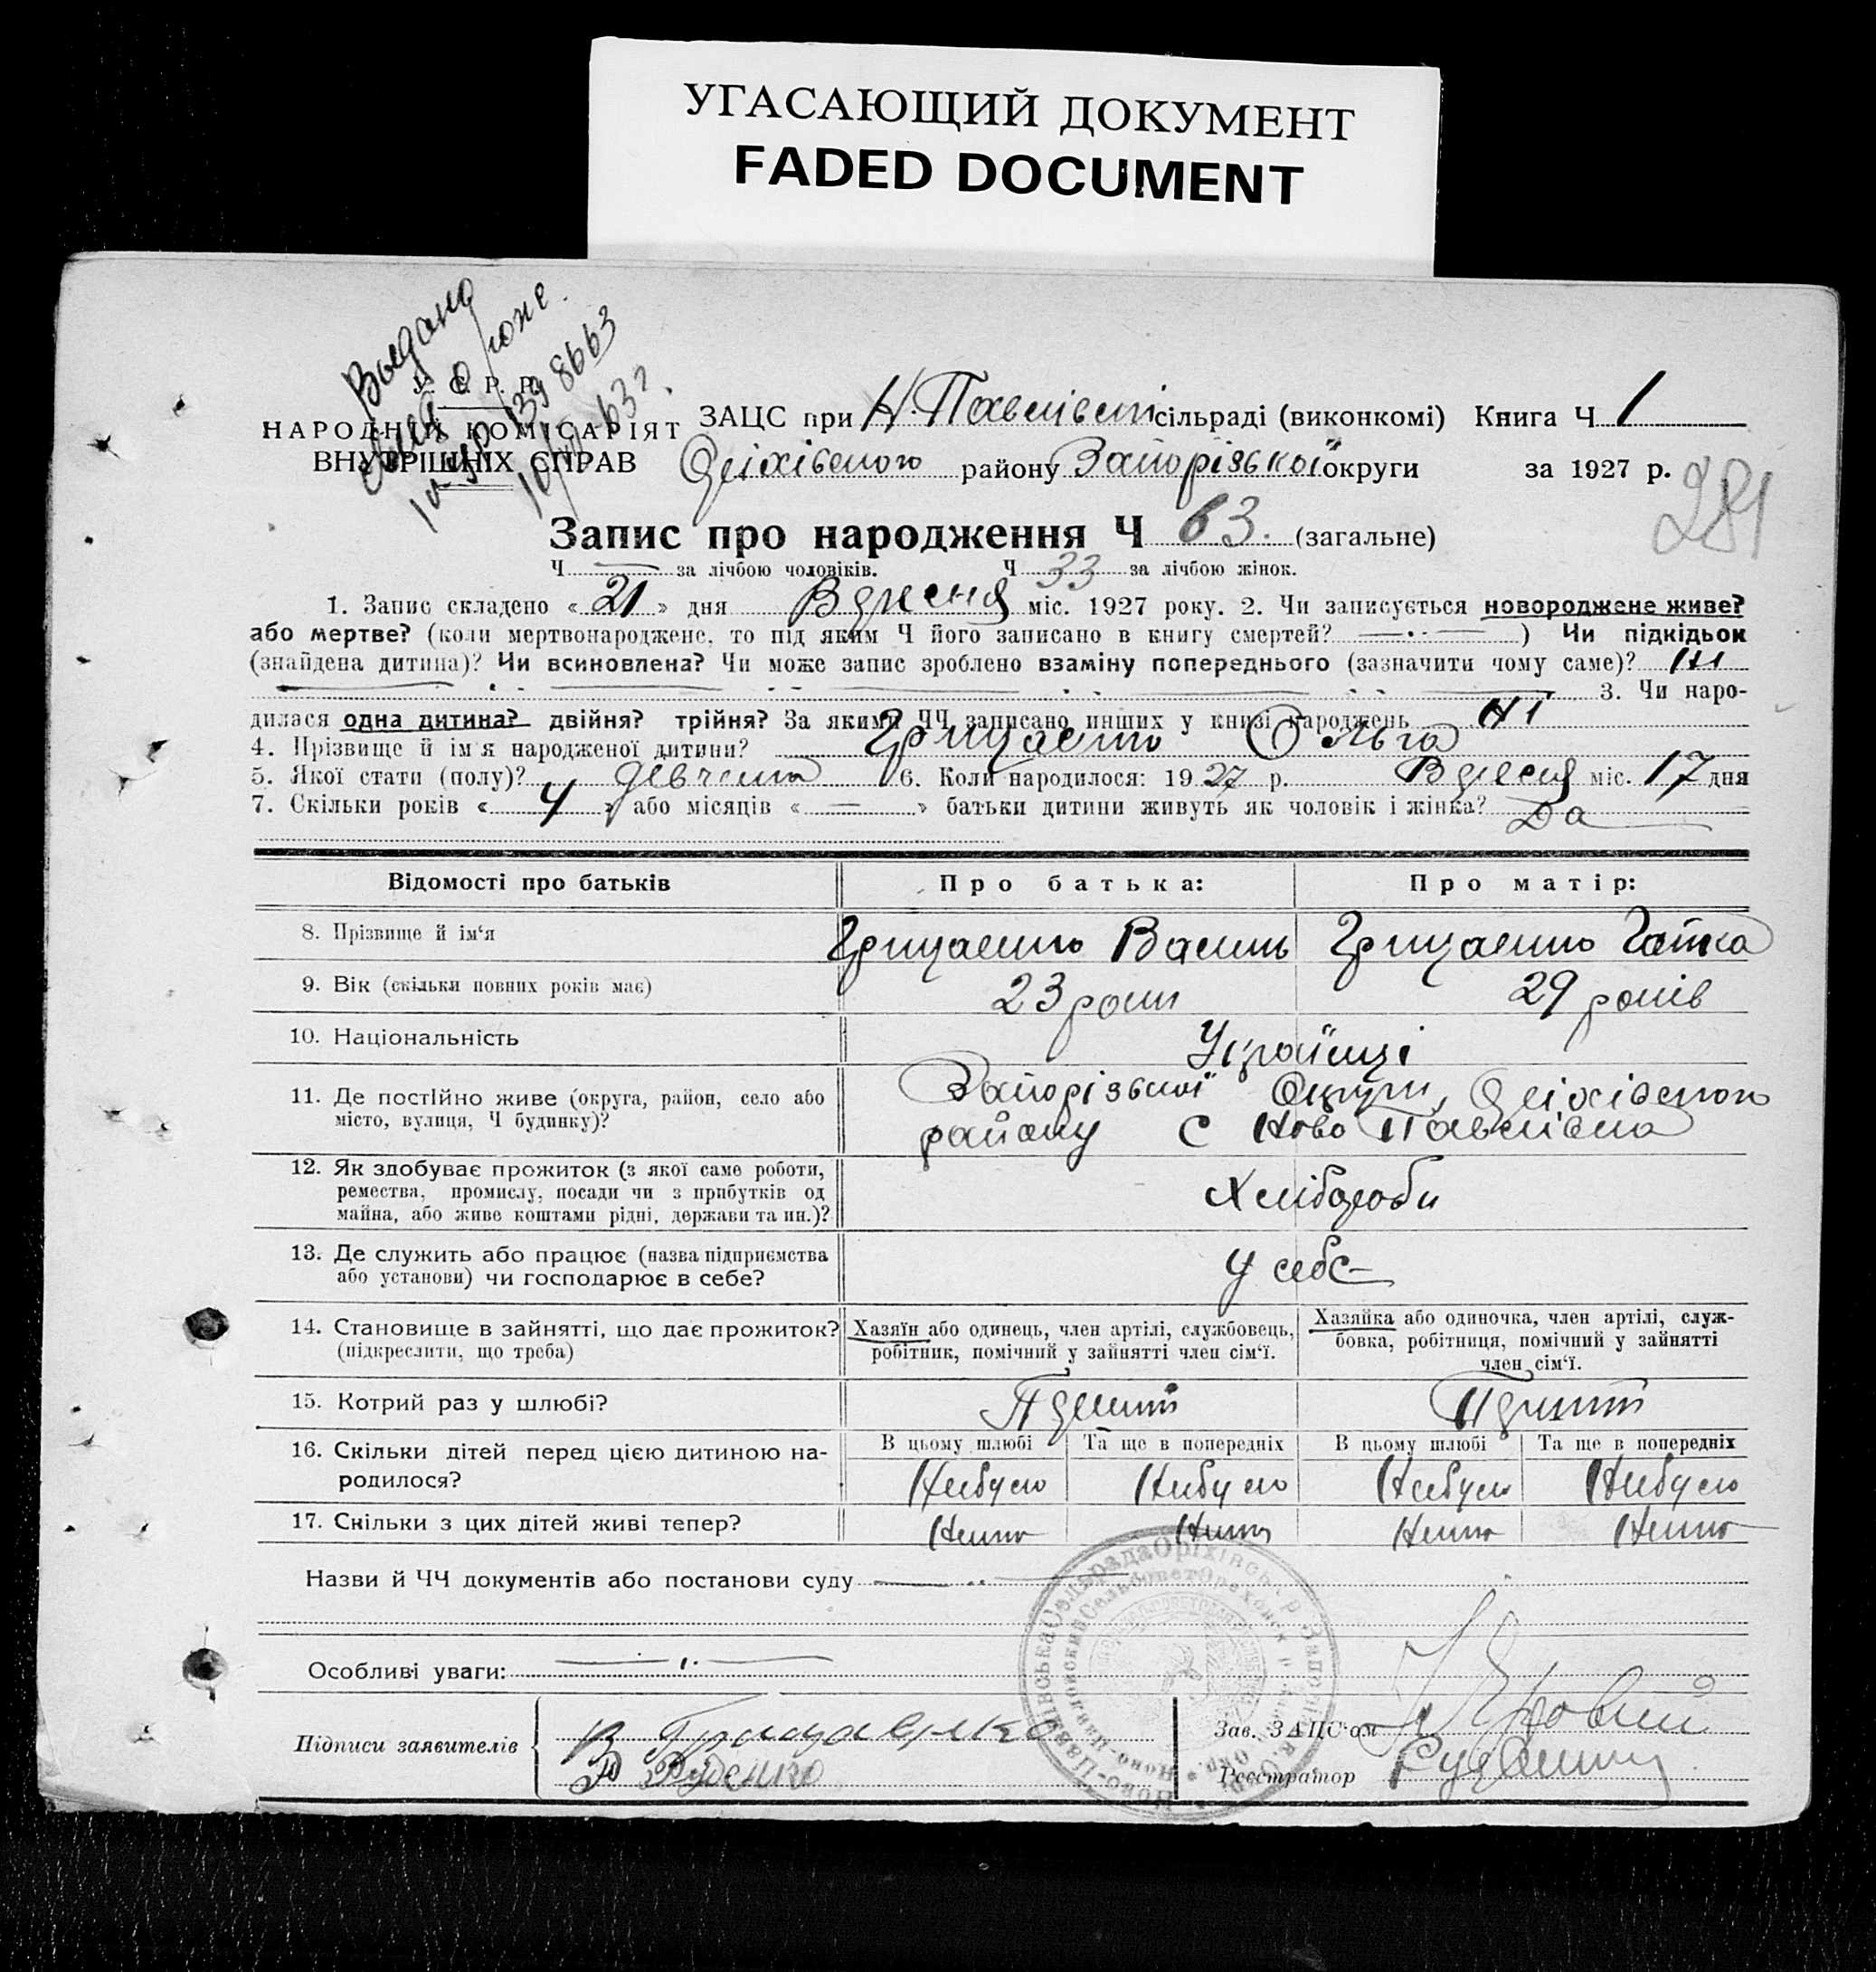 УГАСАЮЩИЙ ДОКУМЕНТ
FADED DOCUMENT
Выдано
У. С. Р. Р.
НАРОДНІЙ КОМІСАРІЯТ
ВНУТРІШНІХ СПРАВ
ЗАЦС при Н. Павлівській сільраді (виконкомі) Книга Ч 1
Оріхівського району Запорізької округи за 1927 р.
281
Запис про народження Ч 63. (загальне)
Ч — за лічбою чоловіків. Ч 33 за лічбою жінок.
1. Запис складено « 21 » дня Вересня міс. 1927 року. 2. Чи записується новороджене живе?
або мертве? (коли мертвонароджене, то під яким Ч його записано в книгу смертей? — · — ) Чи підкідьок
(знайдена дитина)? Чи всиновлена? Чи може запис зроблено взаміну попереднього (зазначити чому саме)? Ні
3. Чи наро-
дилася одна дитина? двійня? трійня? За якими ЧЧ записано инших у книзі народжень Ні
4. Прізвище й ім'я народженої дитини? Грицаенко Ольга
5. Якої стати (полу)? 6. Коли народилося: 1927 р. Вересня міс. 17 дня
7. Скільки років « 4 » або місяців « — » батьки дитини живуть як чоловік і жінка? Да
Відомості про батьків Про батька: Про матір:
8. Прізвище й ім'я Грицаенко Василь Грицаенко
9. Вік (скільки повних років має) 23 роки 29 років
10. Національність Українці
11. Де постійно живе (округа, район, село або Запорізької Округи, Оріхівского
місто, вулиця, Ч будинку)? району С Ново Павлівка
12. Як здобуває прожиток (з якої саме роботи,
ремества, промислу, посади чи з прибутків од Хлібороби
майна, або живе коштами рідні, держави та ин.)?
13. Де служить або працює (назва підприємства У себе
або установи) чи господарює в себе?
14. Становище в зайнятті, що дає прожиток? Хазяїн або одинець, член артілі, службовець, Хазяйка або одиночка, член артілі, служ-
(підкреслити, що треба) робітник, помічний у зайнятті член сім'ї. бовка, робітниця, помічний у зайнятті
член сім'ї.
15. Котрий раз у шлюбі? Перший Перший
16. Скільки дітей перед цією дитиною на- В цьому шлюбі Та ще в попередніх В цьому шлюбі Та ще в попередніх
родилося? Небуло Небуло Небуло Небуло
17. Скільки з цих дітей живі тепер? Нема Нема Нема Нема
Назви й ЧЧ документів або постанови суду —
Особливі уваги: —
Підписи заявителів В Грицаенко
Руденко
Зав. ЗАЦС'ом Яровий
Реєстратор